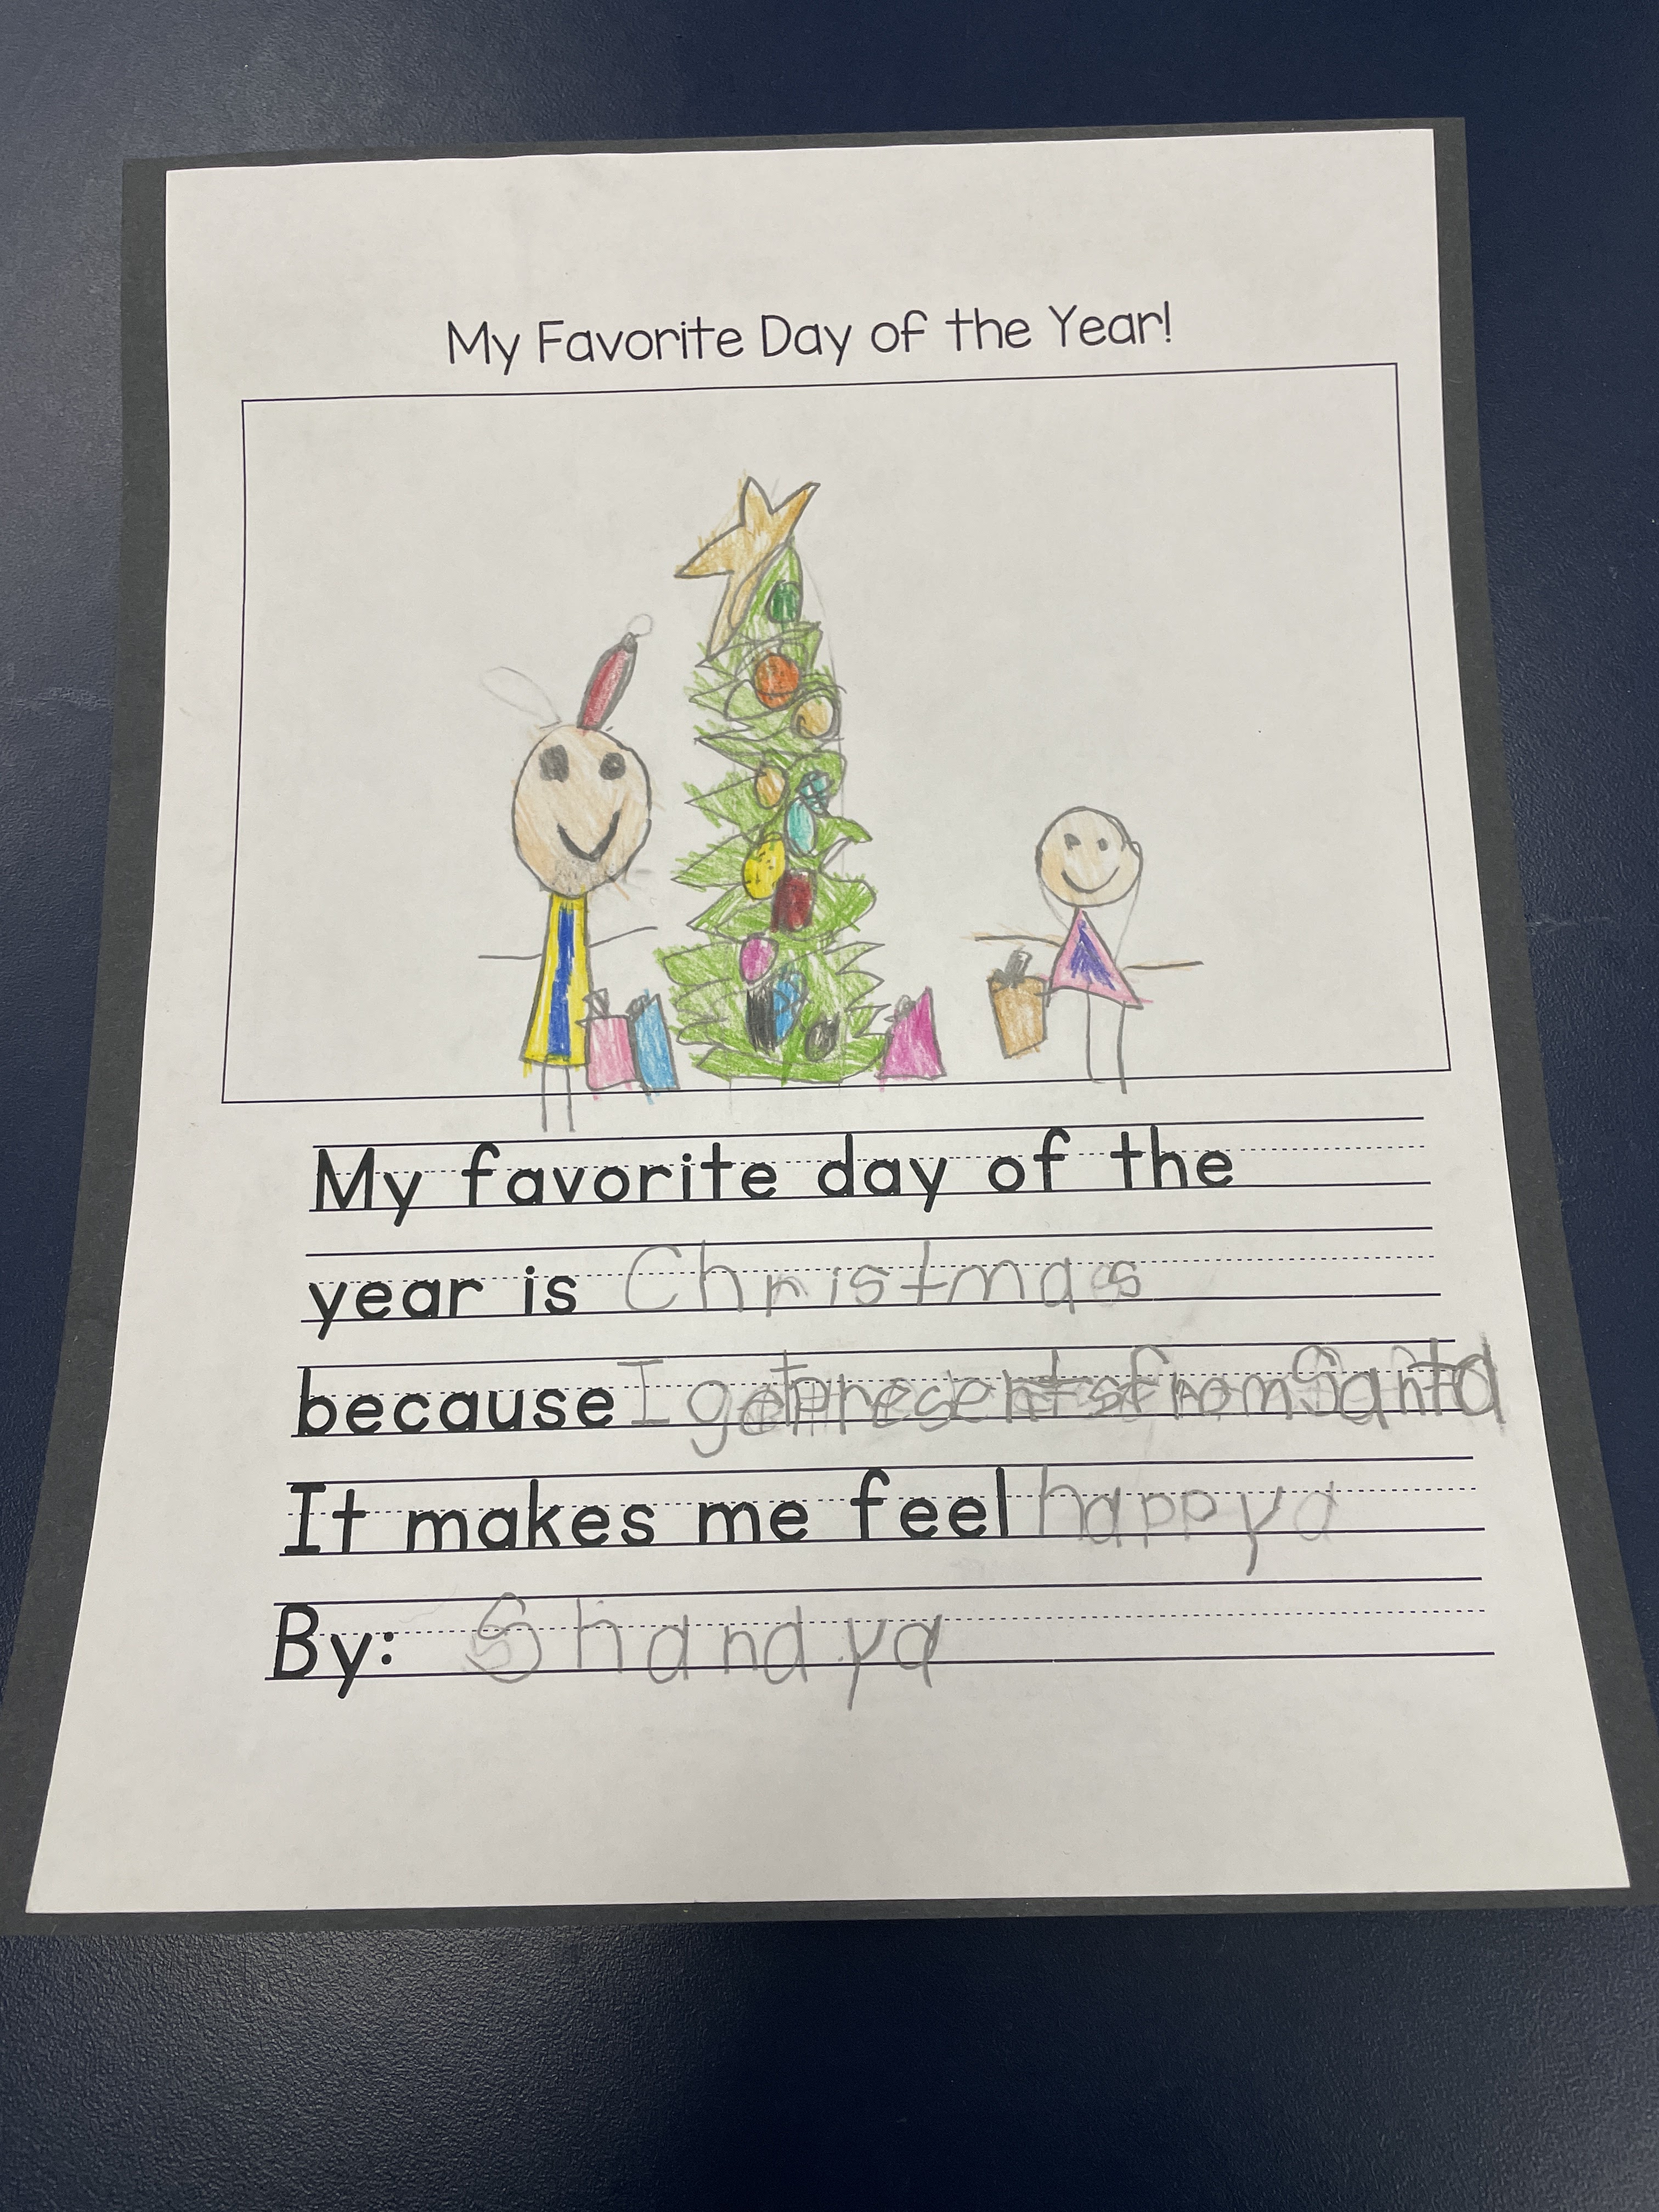 My Favorite Day of the Year!
My favorite day of the
year is Christmas
because I get presents from Santa
It makes me feel happy a
By: Shandya